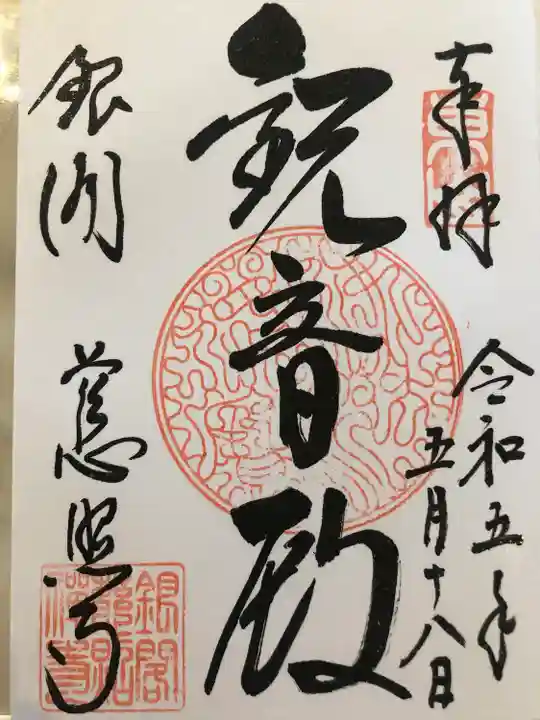 奉拝
令和五年
五月十八日
観音殿
銀閣
慈照寺
銀閣
慈照
禅寺